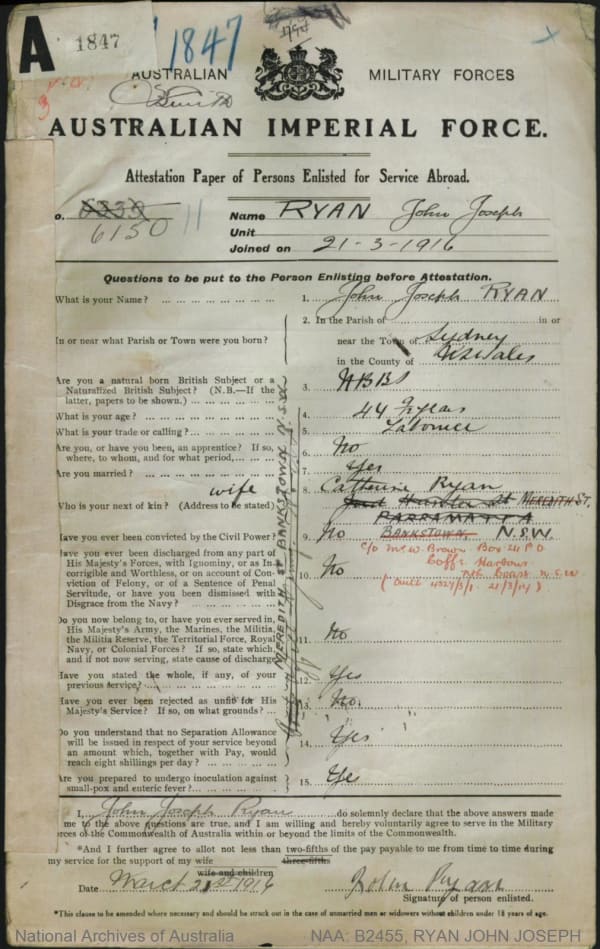 A 1847
1847
AUSTRALIAN MILITARY FORCES
AUSTRALIAN IMPERIAL FORCE.
Attestation Paper of Persons Enlisted for Service Abroad.
o. 6150 Name RYAN John Joseph
Unit
Joined on 21-3-1916
Questions to be put to the Person Enlisting before Attestation.
What is your Name? 1. John Joseph RYAN
2. In the Parish of in or
In or near what Parish or Town were you born? near the Town of Sydney
in the County of N.S.Wales
Are you a natural born British Subject or a 3. NBBS
Naturalized British Subject? (N.B.—If the
latter, papers to be shown.)
What is your age? 4. 44 years
What is your trade or calling? 5. Labourer
Are you, or have you been, an apprentice? If so, 6. No
where, to whom, and for what period
Are you married? 7. Yes
wife 8. Catherine Ryan
Who is your next of kin? (Address to be stated) MEREDITH ST,
PARRAMATTA
Have you ever been convicted by the Civil Power? 9. No BANKSTOWN N.S.W
c/o Mr W. Brown Box 211 P O
Coffs Harbour
Nth Coast N.S.W
Have you ever been discharged from any part of 10. No
His Majesty's Forces, with Ignominy, or as In-
corrigible and Worthless, or on account of Con-
viction of Felony, or of a Sentence of Penal
Servitude, or have you been dismissed with
Disgrace from the Navy?
MEREDITH ST BANKSTOWN N.S.W
Do you now belong to, or have you ever served in, 11. No
His Majesty's Army, the Marines, the Militia,
the Militia Reserve, the Territorial Force, Royal
Navy, or Colonial Forces? If so, state which,
and if not now serving, state cause of discharge
Have you stated the whole, if any, of your 12. Yes
previous service?
Have you ever been rejected as unfit for His 13. No.
Majesty's Service? If so, on what grounds?
Do you understand that no Separation Allowance 14. Yes
will be issued in respect of your service beyond
an amount which, together with Pay, would
reach eight shillings per day?
Are you prepared to undergo inoculation against 15. Yes
small-pox and enteric fever?
I, John Joseph Ryan do solemnly declare that the above answers made
me to the above questions are true, and I am willing and hereby voluntarily agree to serve in the Military
orces of the Commonwealth of Australia within or beyond the limits of the Commonwealth.
*And I further agree to allot not less than two-fifths of the pay payable to me from time to time during
three-fifths
my service for the support of my wife
wife and children
Date March 21st 1916 John Ryan
Signature of person enlisted.
*This clause to be amended where necessary and should be struck out in the case of unmarried men or widowers without children under 18 years of age.
National Archives of Australia NAA: B2455, RYAN JOHN JOSEPH